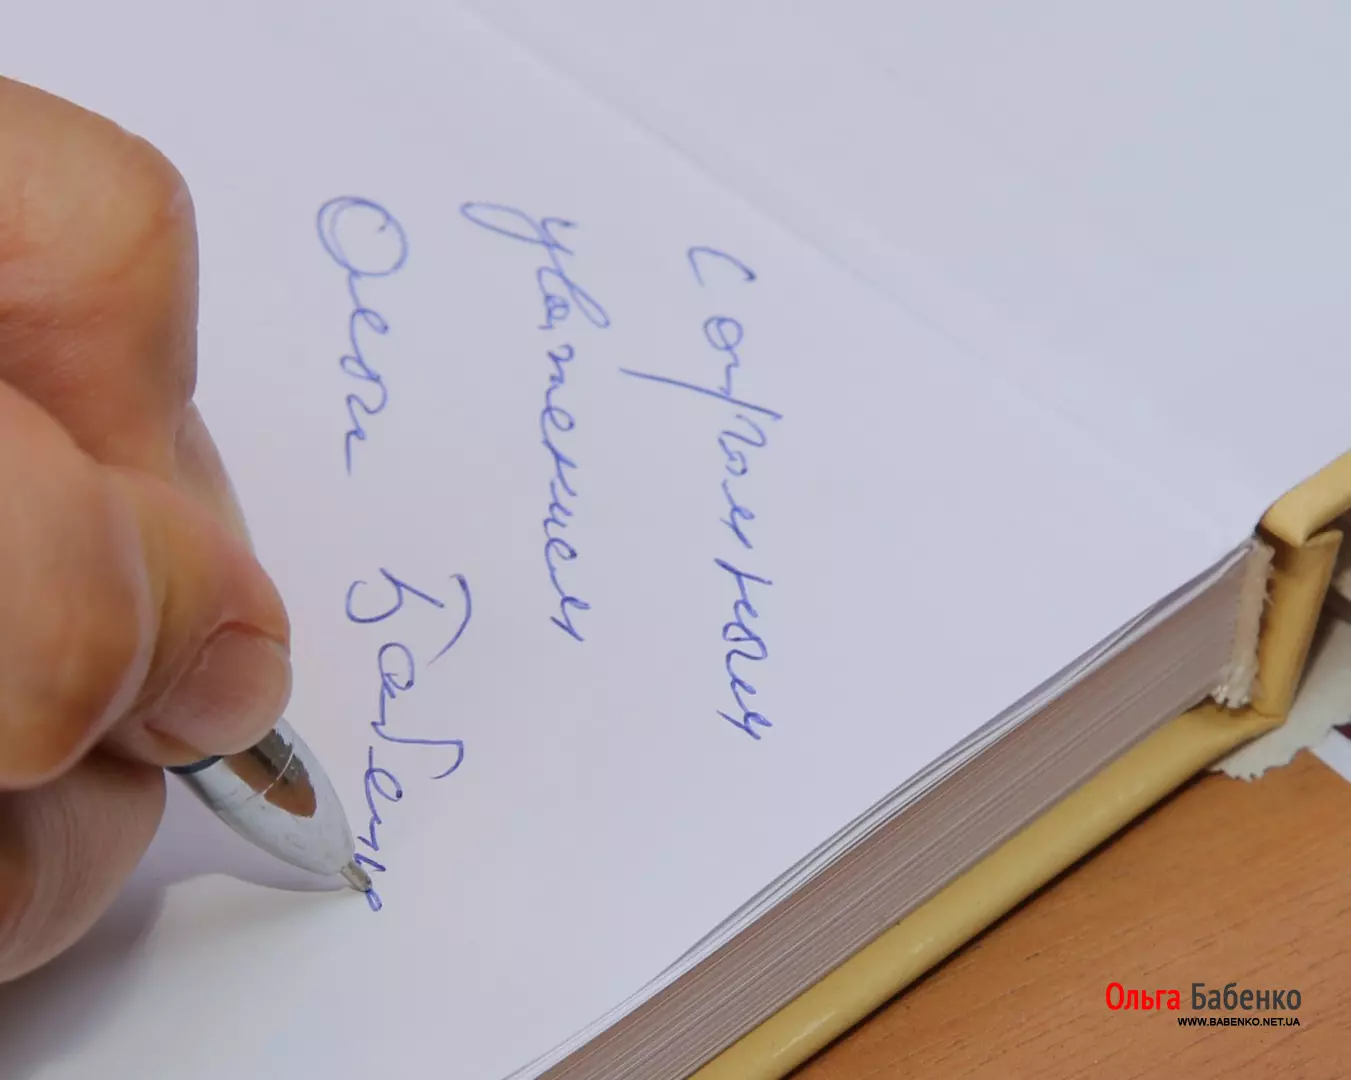 С огромным
уважением
Ольга Бабенк
Ольга Бабенко
WWW.BABENKO.NET.UA